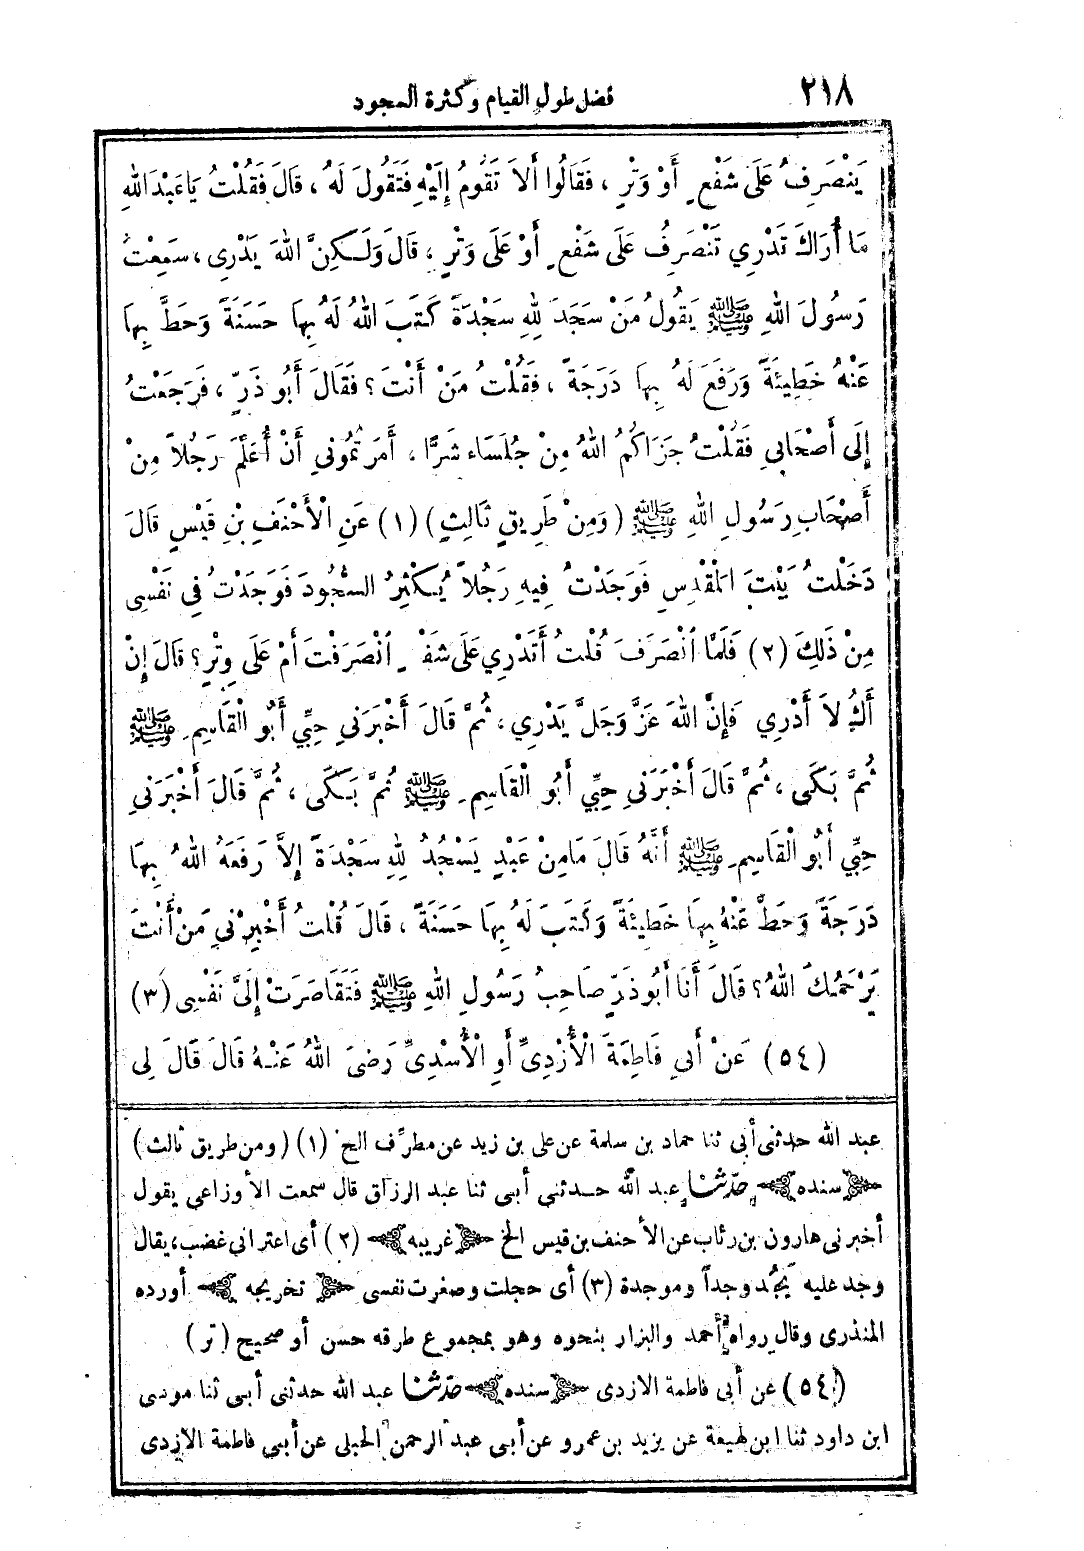 ٢١٨
فضل طول القيام وكثرة السجود
يَنْصَرِفُ عَلَى شَفْعٍ أَوْ وَتْرٍ ، فَقَالُوا أَلاَ تَقُومُ إِلَيْهِ فَتَقُولَ لَهُ ، قَالَ فَقُلْتُ يَا عَبْدَ اللهِ
مَا أُرَاكَ تَدْرِي تَنْصَرِفُ عَلَى شَفْعٍ أَوْ عَلَى وَتْرٍ ، قَالَ وَلَكِنَّ اللهَ يَدْرِى ، سَمِعْتُ
رَسُولَ اللهِ ﷺ يَقُولُ مَنْ سَجَدَ لِلهِ سَجْدَةً كَتَبَ اللهُ لَهُ بِهَا حَسَنَةً وَحَطَّ بِهَا
عَنْهُ خَطِيئَةً وَرَفَعَ لَهُ بِهَا دَرَجَةً ، فَقُلْتُ مَنْ أَنْتَ ؟ فَقَالَ أَبُو ذَرٍّ ، فَرَجَعْتُ
إِلَى أَصْحَابِي فَقُلْتُ جَزَاكُمُ اللهُ مِنْ جُلَسَاءَ شَرًّا ، أَمَرْتُمُونِي أَنْ أُعَلِّمَ رَجُلاً مِنْ
أَصْحَابِ رَسُولِ اللهِ ﷺ (وَمِنْ طَرِيقٍ ثَالِثٍ) (١) عَنِ الْأَحْنَفِ بْنِ قَيْسٍ قَالَ
دَخَلْتُ بَيْتَ الْمَقْدِسِ فَوَجَدْتُ فِيهِ رَجُلاً يُكْثِرُ السُّجُودَ فَوَجَدْتُ فِي نَفْسِى
مِنْ ذَلِكَ (٢) فَلَمَّا انْصَرَفَ قُلْتُ أَتَدْرِي عَلَى شَفْعٍ انْصَرَفْتَ أَمْ عَلَى وِتْرٍ ؟ قَالَ إِنْ
أَكُ لاَ أَدْرِي فَإِنَّ اللهَ عَزَّ وَجَلَّ يَدْرِي ، ثُمَّ قَالَ أَخْبَرَنِي حِبِّي أَبُو الْقَاسِمِ ﷺ
ثُمَّ بَكَى ، ثُمَّ قَالَ أَخْبَرَنِي حِبِّي أَبُو الْقَاسِمِ ﷺ ثُمَّ بَكَى ، ثُمَّ قَالَ أَخْبَرَنِي
حِبِّي أَبُو الْقَاسِمِ ﷺ أَنَّهُ قَالَ مَا مِنْ عَبْدٍ يَسْجُدُ لِلهِ سَجْدَةً إِلاَّ رَفَعَهُ اللهُ بِهَا
دَرَجَةً وَحَطَّ عَنْهُ بِهَا خَطِيئَةً وَكَتَبَ لَهُ بِهَا حَسَنَةً ، قَالَ قُلْتُ أَخْبِرْنِي مَنْ أَنْتَ
يَرْحَمُكَ اللهُ ؟ قَالَ أَنَا أَبُو ذَرٍّ صَاحِبُ رَسُولِ اللهِ ﷺ فَتَقَاصَرَتْ إِلَىَّ نَفْسِى (٣)
(٥٤) عَنْ أَبِي فَاطِمَةَ الْأَزْدِىِّ أَوِ الْأَسْدِىِّ رَضِىَ اللهُ عَنْهُ قَالَ قَالَ لِى
عبد الله حدثنى أبى ثنا حماد بن سلمة عن على بن زيد عن مطرِّف الخ (١) (ومن طريق ثالث)
﴿سنده﴾ حدّثنا عبد الله حدثنى أبى ثنا عبد الرزاق قال سمعت الأوزاعى يقول
أخبرنى هارون بن رئاب عن الأحنف بن قيس الخ ﴿غريبه﴾ (٢) أى اعترانى غضب ، يقال
وجد عليه يَجُد وجداً وموجدة (٣) أى خجلت وصغرت نفسى ﴿تخريجه﴾ أورده
المنذرى وقال رواه أحمد والبزار بنحوه وهو بمجموع طرقه حسن أو صحيح (تر)
(٥٤) عن أبى فاطمة الازدى ﴿سنده﴾ حدّثنا عبد الله حدثنى أبى ثنا موسى
ابن داود ثنا ابن لهيعة عن يزيد بن عمرو عن أبى عبد الرحمن الحبلى عن أبى فاطمة الازدى